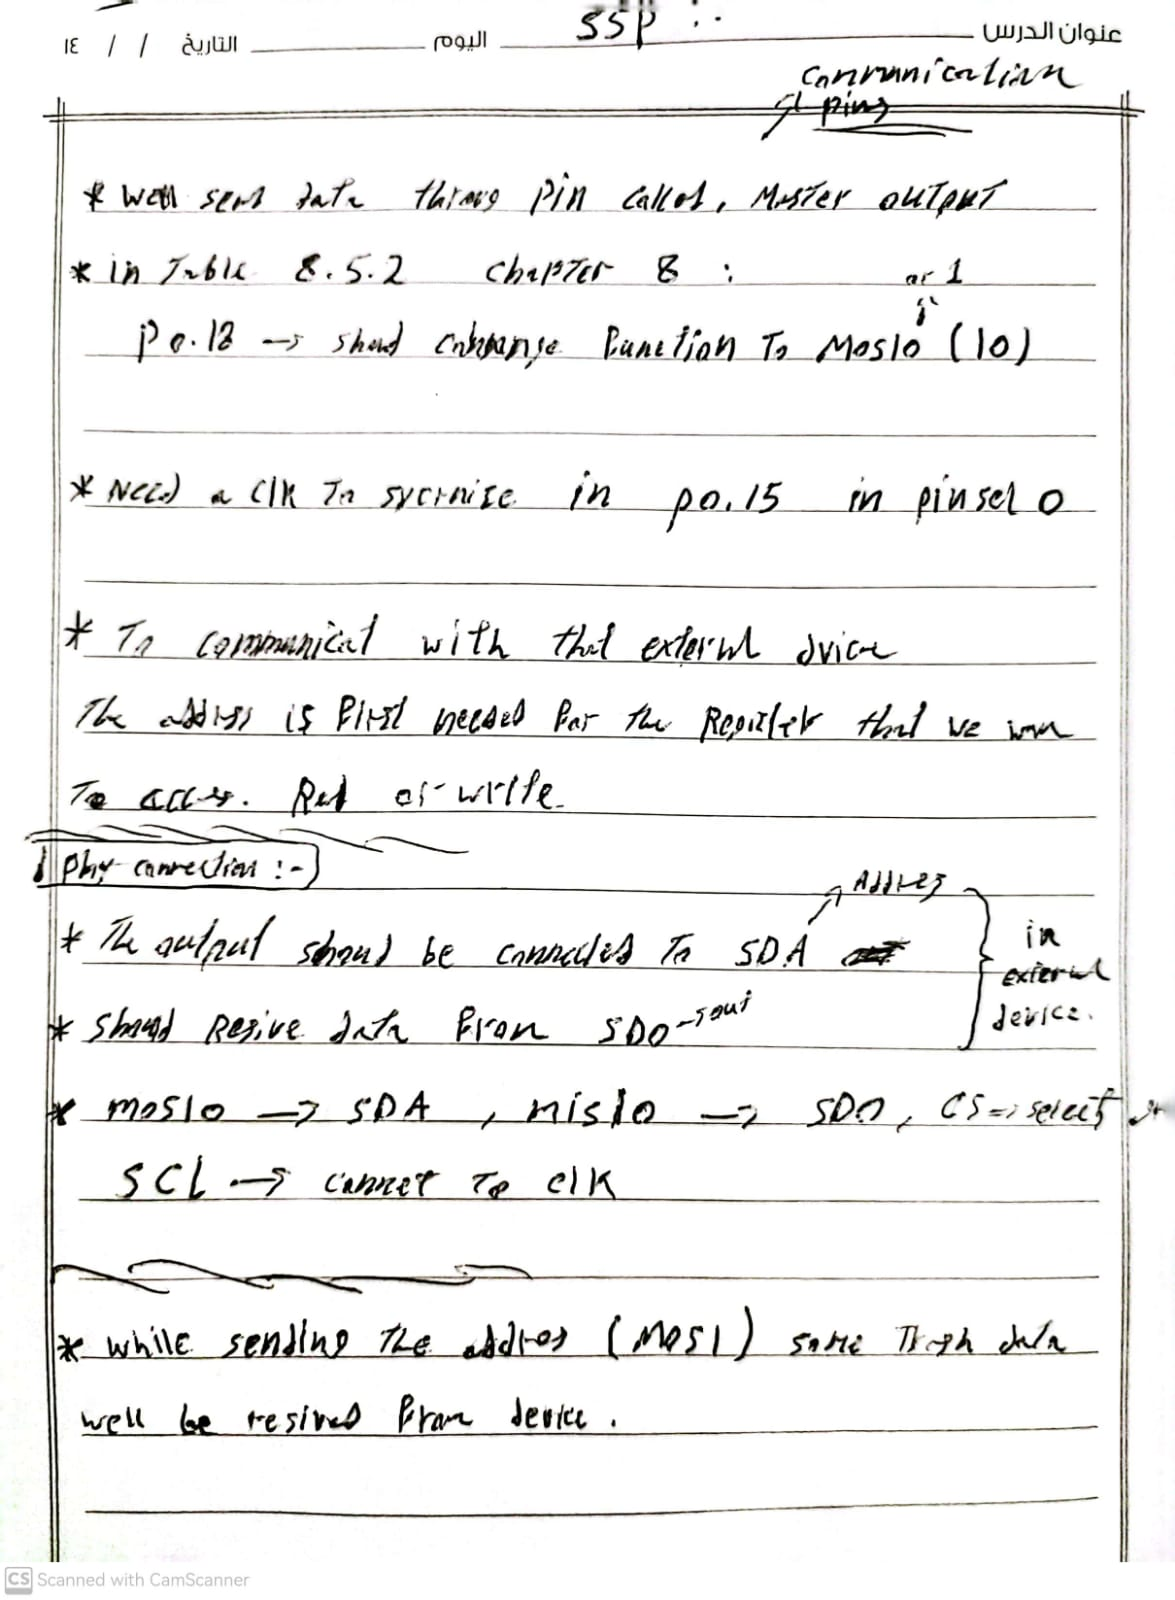 عنوان الدرس SSP :. اليوم التاريخ / / ١٤
communication
pins
* well send data throug pin called, Master output
* in Table 8.5.2 chapter 8 :
or 1
p0.18 → shoud change Function To Mosi0 (10)
* Need a clk To sycrnise in p0.15 in pinsel 0
* To communicat with that external dvice
The address is First needed For the Register that we wan
To acces. Red or write.
Phy connection :-
Addres
* The output should be connected To SDA
in external device.
* should Resive data From SDO -
* mosi0 → SDA , miso0 → SDO , CS => select
SCL → connet To clk
* while sending The addres (MOSI) same data
well be resived From device .
CS Scanned with CamScanner